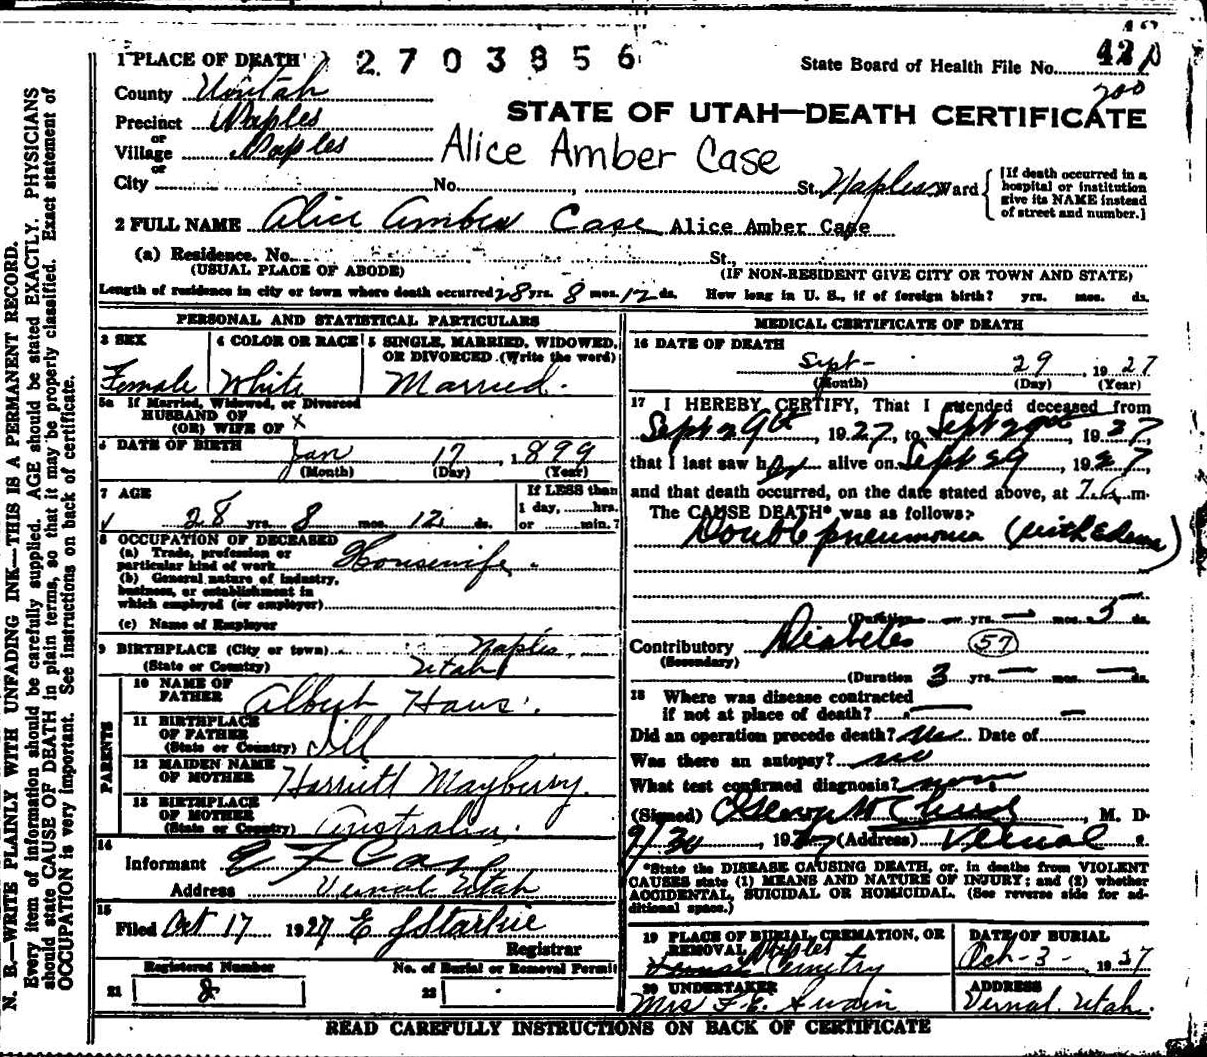 1 PLACE OF DEATH 2703856
State Board of Health File No. 42
200
County Uintah
STATE OF UTAH—DEATH CERTIFICATE
Precinct Naples
or
Village Naples
Alice Amber Case
or
City No. , St. Naples Ward
[If death occurred in a hospital or institution give its NAME instead of street and number.]
2 FULL NAME Alice Amber Case Alice Amber Case
(a) Residence. No. St.,
(USUAL PLACE OF ABODE) (IF NON-RESIDENT GIVE CITY OR TOWN AND STATE)
Length of residence in city or town where death occurred 28 yrs. 8 mos. 12 ds. How long in U. S., if of foreign birth? yrs. mos. ds.
PERSONAL AND STATISTICAL PARTICULARS
3 SEX
Female
4 COLOR OR RACE
White
5 SINGLE, MARRIED, WIDOWED, OR DIVORCED (Write the word)
Married.
5a If Married, Widowed, or Divorced
HUSBAND OF
(OR) WIFE OF X
6 DATE OF BIRTH Jan 17, 1899
(Month) (Day) (Year)
7 AGE
28 yrs. 8 mos. 12 ds.
If LESS than
1 day, hrs.
or min.?
8 OCCUPATION OF DECEASED
(a) Trade, profession or
particular kind of work Housewife.
(b) General nature of industry,
business, or establishment in
which employed (or employer)
(c) Name of Employer
9 BIRTHPLACE (City or town) Naples,
(State or Country) Utah
PARENTS
10 NAME OF
FATHER Albert Haws.
11 BIRTHPLACE
OF FATHER
(State or Country) Ill
12 MAIDEN NAME
OF MOTHER Harriett Mayberry.
13 BIRTHPLACE
OF MOTHER
(State or Country) Australia.
14
Informant E F Case
Address Vernal Utah
15
Filed Oct 17 1927 E J Starkie
Registrar
Registered Number
No. of Burial or Removal Permit
21 8 22
MEDICAL CERTIFICATE OF DEATH
16 DATE OF DEATH
Sept- 29, 1927
(Month) (Day) (Year)
17 I HEREBY CERTIFY, That I attended deceased from
Sept 29th, 1927, to Sept 29th, 1927,
that I last saw her alive on Sept 29, 1927,
and that death occurred, on the date stated above, at 7 a. m.
The CAUSE DEATH* was as follows:
Double pneumonia (with Edema)
(Duration — yrs. — mos. 5 ds.
Contributory Diabetes 57
(Secondary)
(Duration 3 yrs. — mos. — ds.
18 Where was disease contracted
if not at place of death? — —
Did an operation precede death? no Date of
Was there an autopsy? no
What test confirmed diagnosis?
(Signed) , M. D.
9/30, 1927 (Address) Vernal
*State the DISEASE CAUSING DEATH, or, in deaths from VIOLENT
CAUSES state (1) MEANS AND NATURE OF INJURY; and (2) whether
ACCIDENTAL, SUICIDAL OR HOMICIDAL. (See reverse side for ad-
ditional space.)
19 PLACE OF BURIAL, CREMATION, OR
REMOVAL Naples
Vernal Cemetry
DATE OF BURIAL
Oct-3- 1927
20 UNDERTAKER
Mrs F. E. Swain
ADDRESS
Vernal, Utah.
READ CAREFULLY INSTRUCTIONS ON BACK OF CERTIFICATE
N. B.—WRITE PLAINLY WITH UNFADING INK—THIS IS A PERMANENT RECORD.
Every item of information should be carefully supplied. AGE should be stated EXACTLY. PHYSICIANS
should state CAUSE OF DEATH in plain terms, so that it may be properly classified. Exact statement of
OCCUPATION is very important. See instructions on back of certificate.